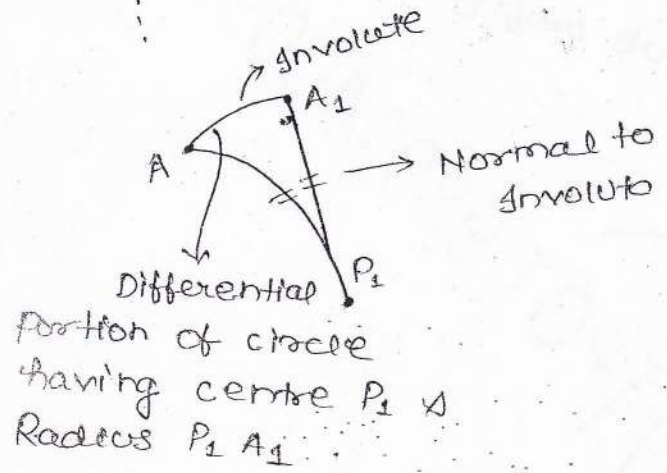 Involute
A1
A
Normal to
Involute
P1
Differential
portion of circle
having centre P1 &
Radius P1 A1